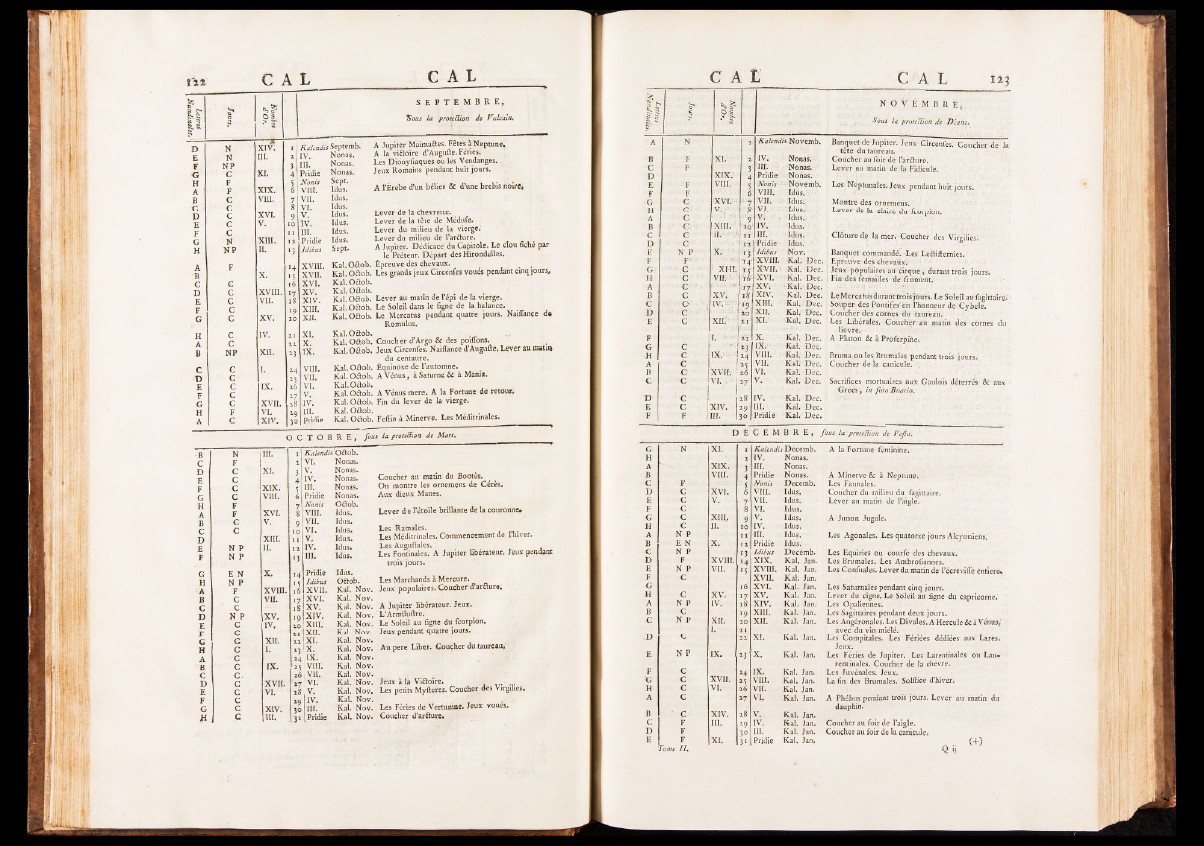 122 CAL CAL
Lettres Nundinales. Jours. Nombre d'Or. SEPTEMBRE,
Sous la protection de Vulcain.
D N XIV. 1 Kalendis Septemb. A Jupiter Maimactes. Fêtes à Neptune.
E N III. 2 IV. Nonas. A la victoire d'Auguſte. Féries.
F NP 3 III. Nonas. Les Dionyſiaques ou les Vendanges.
G C XI. 4 Pridie Nonas. Jeux Romains pendant huit jours.
H F 5 Nonis Sept.
A F XIX. 6 VIII. Idus. A l'Erebe d'un bélier & d'une brebis noire.
B C VIII. 7 VII. Idus.
C C 8 VI. Idus.
D C XVI. 9 V. Idus. Lever de la chevrette.
E C V. 10 IV. Idus. Lever de la tête de Méduſe.
F C 11 III. Idus. Lever du milieu de la vierge.
G N XIII. 12 Pridie Idus. Lever du milieu de l'arcture.
H NP II. 13 Idibus Sept. A Jupiter. Dédicace du Capitole. Le clou fiché par
le Préteur. Départ des Hirondelles.
A F 14 XVIII. Kal. Octob. Épreuve des chevaux.
B X. 15 XVII. Kal. Octob. Les grands jeux Circenſes voués pendant cinq jours.
C C 16 XVI. Kal. Octob.
D C XVIII. 17 XV. Kal. Octob.
E C VII. 18 XIV. Kal. Octob. Lever au matin de l'épi de la vierge.
F C 19 XIII. Kal. Octob. Le Soleil dans le ſigne de la balance.
G C XV. 20 XII. Kal. Octob. Le Mercatus pendant quatre jours. Naiſſance de
Romulus.
H C IV. 21 XI. Kal. Octob.
A C 22 X. Kal. Octob. Coucher d'Argo & des poiſſons.
B NP XII. 23 IX. Kal. Octob. Jeux Circenſes. Naiſſance d'Auguſte. Lever au matin
du centaure.
C C I. 24 VIII. Kal. Octob. Equinoxe de l'automne.
D C 25 VII. Kal. Octob. A Vénus, à Saturne & à Mania.
E C IX. 26 VI. Kal. Octob.
F C 27 V. Kal. Octob. A Vénus mere. A la Fortune de retour.
G C XVII. 28 IV. Kal. Octob. Fin du lever de la vierge.
H F VI. 29 III. Kal. Octob.
A C XIV. 30 Pridie Kal. Octob. Feſtin à Minerve. Les Méditrinales.
OCTOBRE, ſous la protection de Mars.
B N III. 1 Kalendis Octob.
C F 2 VI. Nonas.
D C XI. 3 V. Nonas.
E C 4 IV. Nonas. Coucher au matin du Bootès.
F C XIX. 5 III. Nonas. On montre les ornemens de Cérès.
G C VIII. 6 Pridie Nonas. Aux dieux Manes.
H F 7 Nonis Octob.
A F XVI. 8 VIII. Idus. Lever de l'étoile brillante de la couronne.
B C V. 9 VII. Idus.
C C 10 VI. Idus. Les Ramales.
D XIII. 11 V. Idus. Les Méditrinales. Commencement de l'hiver.
E NP II. 12 IV. Idus. Les Auguſtales.
F NP 13 III. Idus. Les Fontinales. A Jupiter libérateur. Jeux pendant
trois jours.
G EN X. 14 Pridie Idus.
H NP 15 Idibus Octob. Les Marchands à Mercure.
A F XVIII. 16 XVII. Kal. Nov. Jeux populaires. Coucher d'arcture.
B C VII. 17 XVI. Kal. Nov.
C C 18 XV. Kal. Nov. A Jupiter libérateur. Jeux.
D NP XV. 19 XIV. Kal. Nov. L'Armiluſtre.
E C IV. 20 XIII. Kal. Nov. Le Soleil au ſigne du ſcorpion.
F C 21 XII. Kal. Nov. Jeux pendant quatre jours.
G C XII. 22 XI. Kal. Nov.
H C I. 23 X. Kal. Nov. Au pere Liber. Coucher du taureau.
A C 24 IX. Kal. Nov.
B C IX. 25 VIII. Kal. Nov.
C C 26 VII. Kal. Nov.
D C XVII. 27 VI. Kal. Nov. Jeux à la Victoire.
E C VI. 28 V. Kal. Nov. Les petits Myſteres. Coucher des Virgilies.
F C 29 IV. Kal. Nov.
G C XIV. 30 III. Kal. Nov. Les Féries de Vertumne. Jeux voués.
H C III. 31 Pridie Kal. Nov. Coucher d'arcture.
CAL CAL 123
Lettres Nundinales. Jours. Nombre d'Or. NOVEMBRE,
Sous la protection de Diane.
A N 1 Kalendis Novemb. Banquet de Jupiter. Jeux Circenſes. Coucher de la
tête du taureau.
B F XI. 2 IV. Nonas. Coucher au ſoir de l'arcture.
C F 3 III. Nonas. Lever au matin de la Fidicule.
D XIX. 4 Pridie Nonas.
E F VIII. 5 Nonis Novemb. Les Neptunales. Jeux pendant huit jours.
F F 6 VIII. Idus.
G C XVI. 7 VII. Idus. Montre des ornemens.
H C V. 8 VI. Idus. Lever de la claire du ſcorpion.
A C 9 V. Idus.
B C XIII. 10 IV. Idus.
C C II. 11 III. Idus. Clôture de la mer. Coucher des Virgilies.
D C 12 Pridie Idus.
E NP X. 13 Idibus Nov. Banquet commandé. Les Lectiſternies.
F F 14 XVIII. Kal. Dec. Epreuve des chevaux.
G C XIII. 15 XVII. Kal. Dec. Jeux populaires au cirque, durant trois jours.
H C VII. 16 XVI. Kal. Dec. Fin des ſemailles de froment.
A C 17 XV. Kal. Dec.
B C XV. 18 XIV. Kal. Dec. Le Mercatus durant trois jours. Le Soleil au ſagittaire.
C C IV. 19 XIII. Kal. Dec. Souper des Pontifes en l'honneur de Cybele.
D C 20 XII. Kal. Dec. Coucher des cornes du taureau.
E C XII. 21 XI. Kal. Dec. Les Libérales. Coucher au matin des cornes du
lievre.
F I. 22 X. Kal. Dec. A Pluton & à Proſerpine.
G C 23 IX. Kal. Dec.
H C IX. 24 VIII. Kal. Dec. Bruma ou les Brumales pendant trois jours.
A C 25 VII. Kal. Dec. Coucher de la canicule.
B C XVII. 26 VI. Kal. Dec.
C C VI. 27 V. Kal. Dec. Sacrifices mortuaires aux Gaulois déterrés & aux
Grecs, in foro Boario.
D C 28 IV. Kal. Dec.
E C XIV. 29 III. Kal. Dec.
F F III. 30 Pridie Kal. Dec.
DÉCEMBRE, ſous la protection de Veſta.
G N XI. 1 Kalendis Decemb. A la Fortune féminine.
H 2 IV. Nonas.
A XIX. 3 III. Nonas.
B VIII. 4 Pridie Nonas. A Minerve & à Neptune.
C F 5 Nonis Decemb. Les Faunales.
D C XVI. 6 VIII. Idus. Coucher du milieu du ſagittaire.
E C V. 7 VII. Idus. Lever au matin de l'aigle.
F C 8 VI. Idus.
G C XIII. 9 V. Idus. A Junon Jugale.
H C II. 10 IV. Idus.
A NP 11 III. Idus. Les Agonales. Les quatorze jours Alcyoniens.
B EN X. 12 Pridie Idus.
C NP 13 Idibus Decemb. Les Equiries ou courſe des chevaux.
D F XVIII. 14 XIX. Kal. Jan. Les Brumales. Les Ambroſiennes.
E NP VII. 15 XVIII. Kal. Jan. Les Conſuales. Lever du matin de l'écreviſſe entiere.
F C XVII. Kal. Jan.
G 16 XVI. Kal. Jan. Les Saturnales pendant cinq jours.
H C XV. 17 XV. Kal. Jan. Lever du cigne. Le Soleil au ſigne du capricorne.
A NP IV. 18 XIV. Kal. Jan. Les Opaliennes.
B C 19 XIII. Kal. Jan. Les Sagittaires pendant deux jours.
C NP XII. 20 XII. Kal. Jan. Les Angéronales. Les Divales. A Hercule & à Vénus,
I. 21 avec du vin miélé.
D C 22 XI. Kal. Jan. Les Compitales. Les Fériées dédiées aux Lares.
Jeux.
E NP IX. 23 X. Kal. Jan. Les Féries de Jupiter. Les Larentinales ou Lau-
rentinales. Coucher de la chevre.
F C 24 IX. Kal. Jan. Les Juvénales. Jeux.
G C XVII. 25 VIII. Kal. Jan. La fin des Brumales. Solſtice d'hiver.
H C VI. 26 VII. Kal. Jan.
A C 27 VI. Kal. Jan. A Phébus pendant trois jours. Lever au matin du
dauphin.
B C XIV. 28 V. Kal. Jan.
C F III. 29 IV. Kal. Jan. Coucher au ſoir de l'aigle.
D F 30 III. Kal. Jan. Coucher au ſoir de la canicule.
E F XI. 31 Pridie Kal. Jan. (+)
Tome II. Q ij